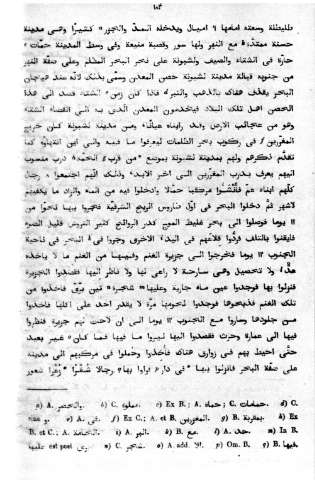 ١٨٤
طليطلة وسعته امامها ٦ اميال ويدخله المد والجزر كثيرا وهى مدينة
حسنة ممتدة مع النهر ولها سور وقصبة منيعة وفى وسط المدينة حمات
حارة فى الشتاء والصيف ولشبونة على نحر البحر المظلم وعلى ضفة النهر
من جنوبه قبالة مدينة لشبونة حصن المعدن وسمى بذلك لانه عند هيجان
البحر يقذف هناك بالذهب والتبر فاذا كان زمن الشتاء قصد الى هذا
الحصن اهل تلك البلاد فيخدمون المعدن الذى به الى انقضاء الشتاء
وهو من عجائب الارض وقد رايناه عيانا ومن مدينة لشبونة كان خروج
المغررين فى ركوب بحر الظلمات ليعرفوا ما فيه والى اين انتهاؤه كما
تقدم ذكرهم ولهم بمدينة لشبونة بموضع من قرب الحمة درب منسوب
اليهم يعرف بدرب المغررين الى اخر الابد وذلك انهم اجتمعوا ٨ رجال
كلهم ابناء عم فانشئوا مركبا حمالا وادخلوا فيه من الماء والزاد ما يكفيهم
لاشهر ثم دخلوا البحر فى اول طاروس الريح الشرقية فجروا بها نحوا من
١١ يوما فوصلوا الى بحر غليظ الموج كدر الروائح كثير التروش قليل الضوء
فايقنوا بالتلف فردوا قلاعهم فى اليد الاخرى وجروا فى البحر فى ناحية
الجنوب ١٢ يوما فخرجوا الى جزيرة الغنم وفيها من الغنم ما لا ياخذه
عد ولا تحصيل وهى سارحة لا راعى لها ولا ناظر اليها فقصدوا الجزيرة
فنزلوا بها فوجدوا عين ماء جارية وعليها شجرة تين برى فاخذوا من
تلك الغنم فذبحوها فوجدوا لحومها مرة لا يقدر احد على اكلها فاخذوا
من جلودها وساروا مع الجنوب ١٢ يوما الى ان لاحت لهم جزيرة فنظروا
فيها الى عمارة وحرث فقصدوا اليها ليروا ما فيها فما كان غير بعيد
حتى احيط بهم فى زوارق هناك فأخذوا وحملوا فى مركبهم الى مدينة
على ضفة البحر فانزلوا بها فى دار فراوا بها رجالا شقرا زعرا شعور